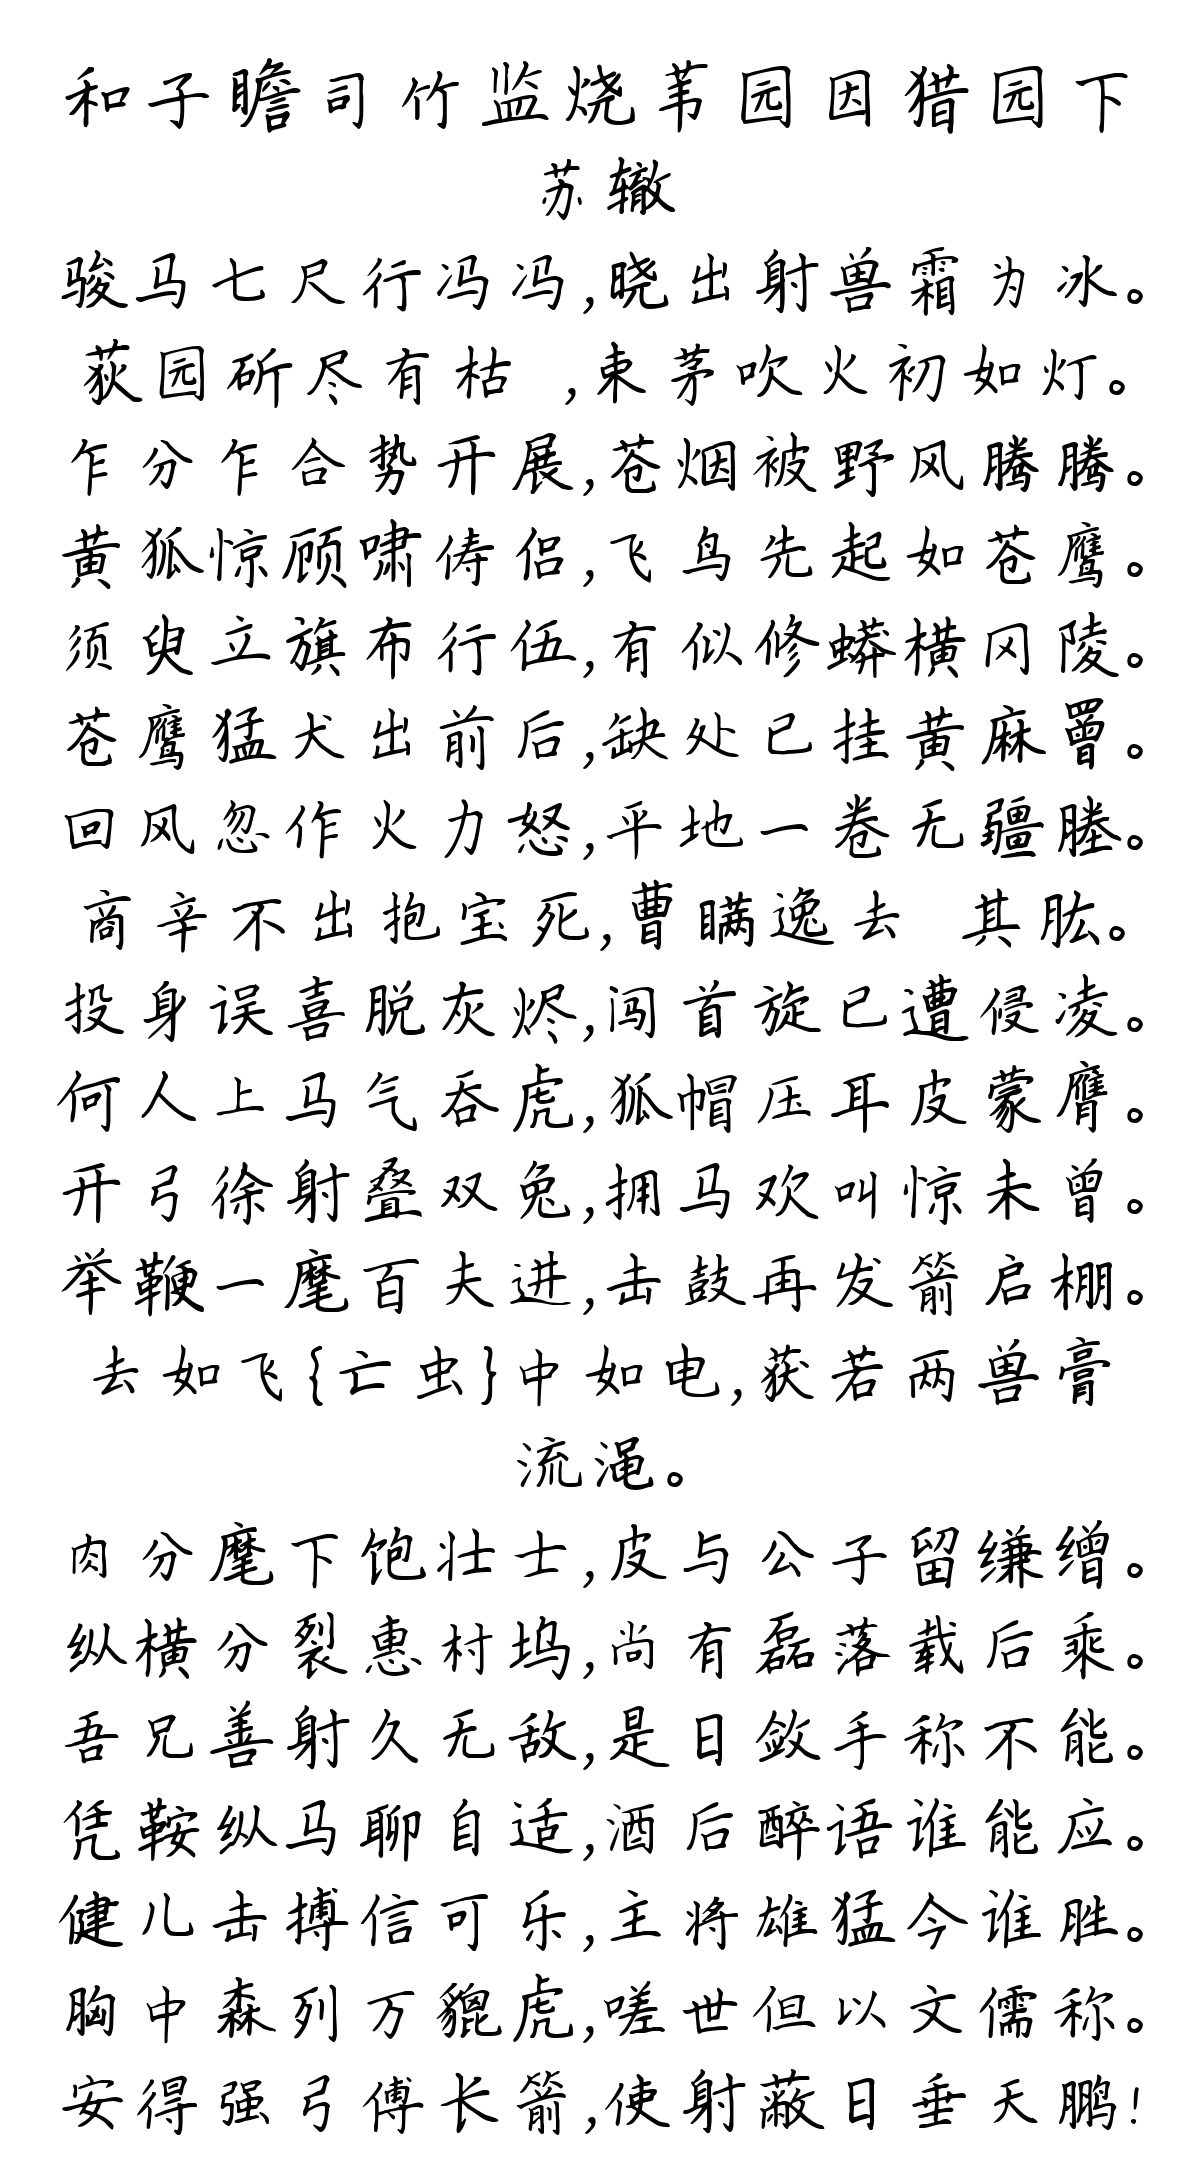 和子瞻司竹监烧苇园因猎园下
苏辙
骏马七尺行冯冯,晓出射兽霜为冰。
荻园斫尽有枯 ,束茅吹火初如灯。
乍分乍合势开展,苍烟被野风腾腾。
黄狐惊顾啸俦侣,飞鸟先起如苍鹰。
须臾立旗布行伍,有似修蟒横冈陵。
苍鹰猛犬出前后,缺处已挂黄麻罾。
回风忽作火力怒,平地一卷无疆塍。
商辛不出抱宝死,曹瞒逸去 其肱。
投身误喜脱灰烬,闯首旋已遭侵凌。
何人上马气吞虎,狐帽压耳皮蒙膺。
开弓徐射叠双兔,拥马欢叫惊未曾。
举鞭一麾百夫进,击鼓再发箭启棚。
去如飞{亡虫}中如电,获若两兽膏
流渑。
肉分麾下饱壮士,皮与公子留缣缯。
纵横分裂惠村坞,尚有磊落载后乘。
吾兄善射久无敌,是日敛手称不能。
凭鞍纵马聊自适,酒后醉语谁能应。
健儿击搏信可乐,主将雄猛今谁胜。
胸中森列万貔虎,嗟世但以文儒称。
安得强弓傅长箭,使射蔽日垂天鹏!